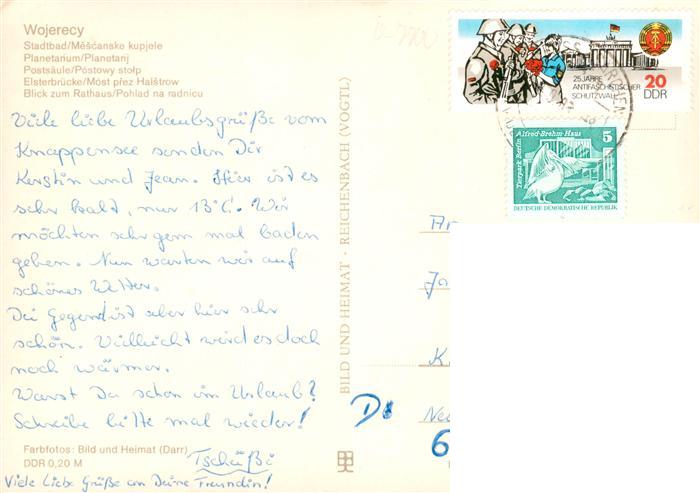 Wojerecy
Stadtbad/Měšćanske kupjele
Planetarium/Planetarij
Postsäule/Póstowy stołp
Elsterbrücke/Móst přez Halštrow
Blick zum Rathaus/Pohlad na radnicu
Viele liebe Urlaubsgrüße vom
Knappensee senden Dir
Kerstin und Jean. Hier ist es
sehr kalt, nur 13°C. Wir
möchten sehr gern mal baden
gehen. Nun warten wir auf
schönes Wetter.
Die Gegend ist aber hier sehr
schön. Vielleicht wird es doch
noch wärmer.
Warst Du schon im Urlaub?
Schreibe bitte mal wieder!
Tschüßi
Viele Liebe Grüße an Deine Freundin!
Farbfotos: Bild und Heimat (Darr)
DDR 0,20 M
BILD UND HEIMAT · REICHENBACH (VOGTL)
25 JAHRE
ANTIFASCHISTISCHER
SCHUTZWALL
20
DDR
Tierpark Berlin
Alfred-Brehm-Haus
5
DEUTSCHE DEMOKRATISCHE REPUBLIK
6